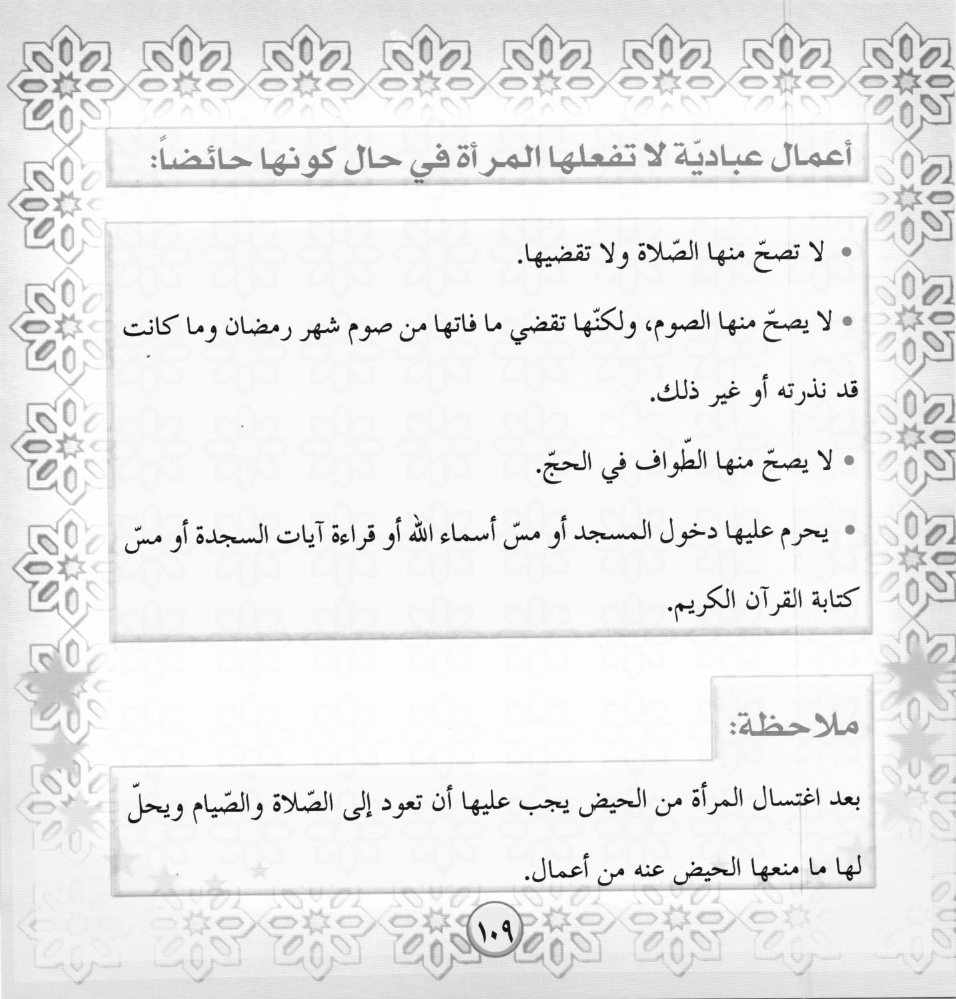 أعمال عباديّة لا تفعلها المرأة في حال كونها حائضاً:
• لا تصحّ منها الصّلاة ولا تقضيها.
• لا يصحّ منها الصوم، ولكنّها تقضي ما فاتها من صوم شهر رمضان وما كانت
قد نذرته أو غير ذلك.
• لا يصحّ منها الطّواف في الحجّ.
• يحرم عليها دخول المسجد أو مسّ أسماء الله أو قراءة آيات السجدة أو مسّ
كتابة القرآن الكريم.
ملاحظة:
بعد اغتسال المرأة من الحيض يجب عليها أن تعود إلى الصّلاة والصّيام ويحلّ
لها ما منعها الحيض عنه من أعمال.
١٠٩